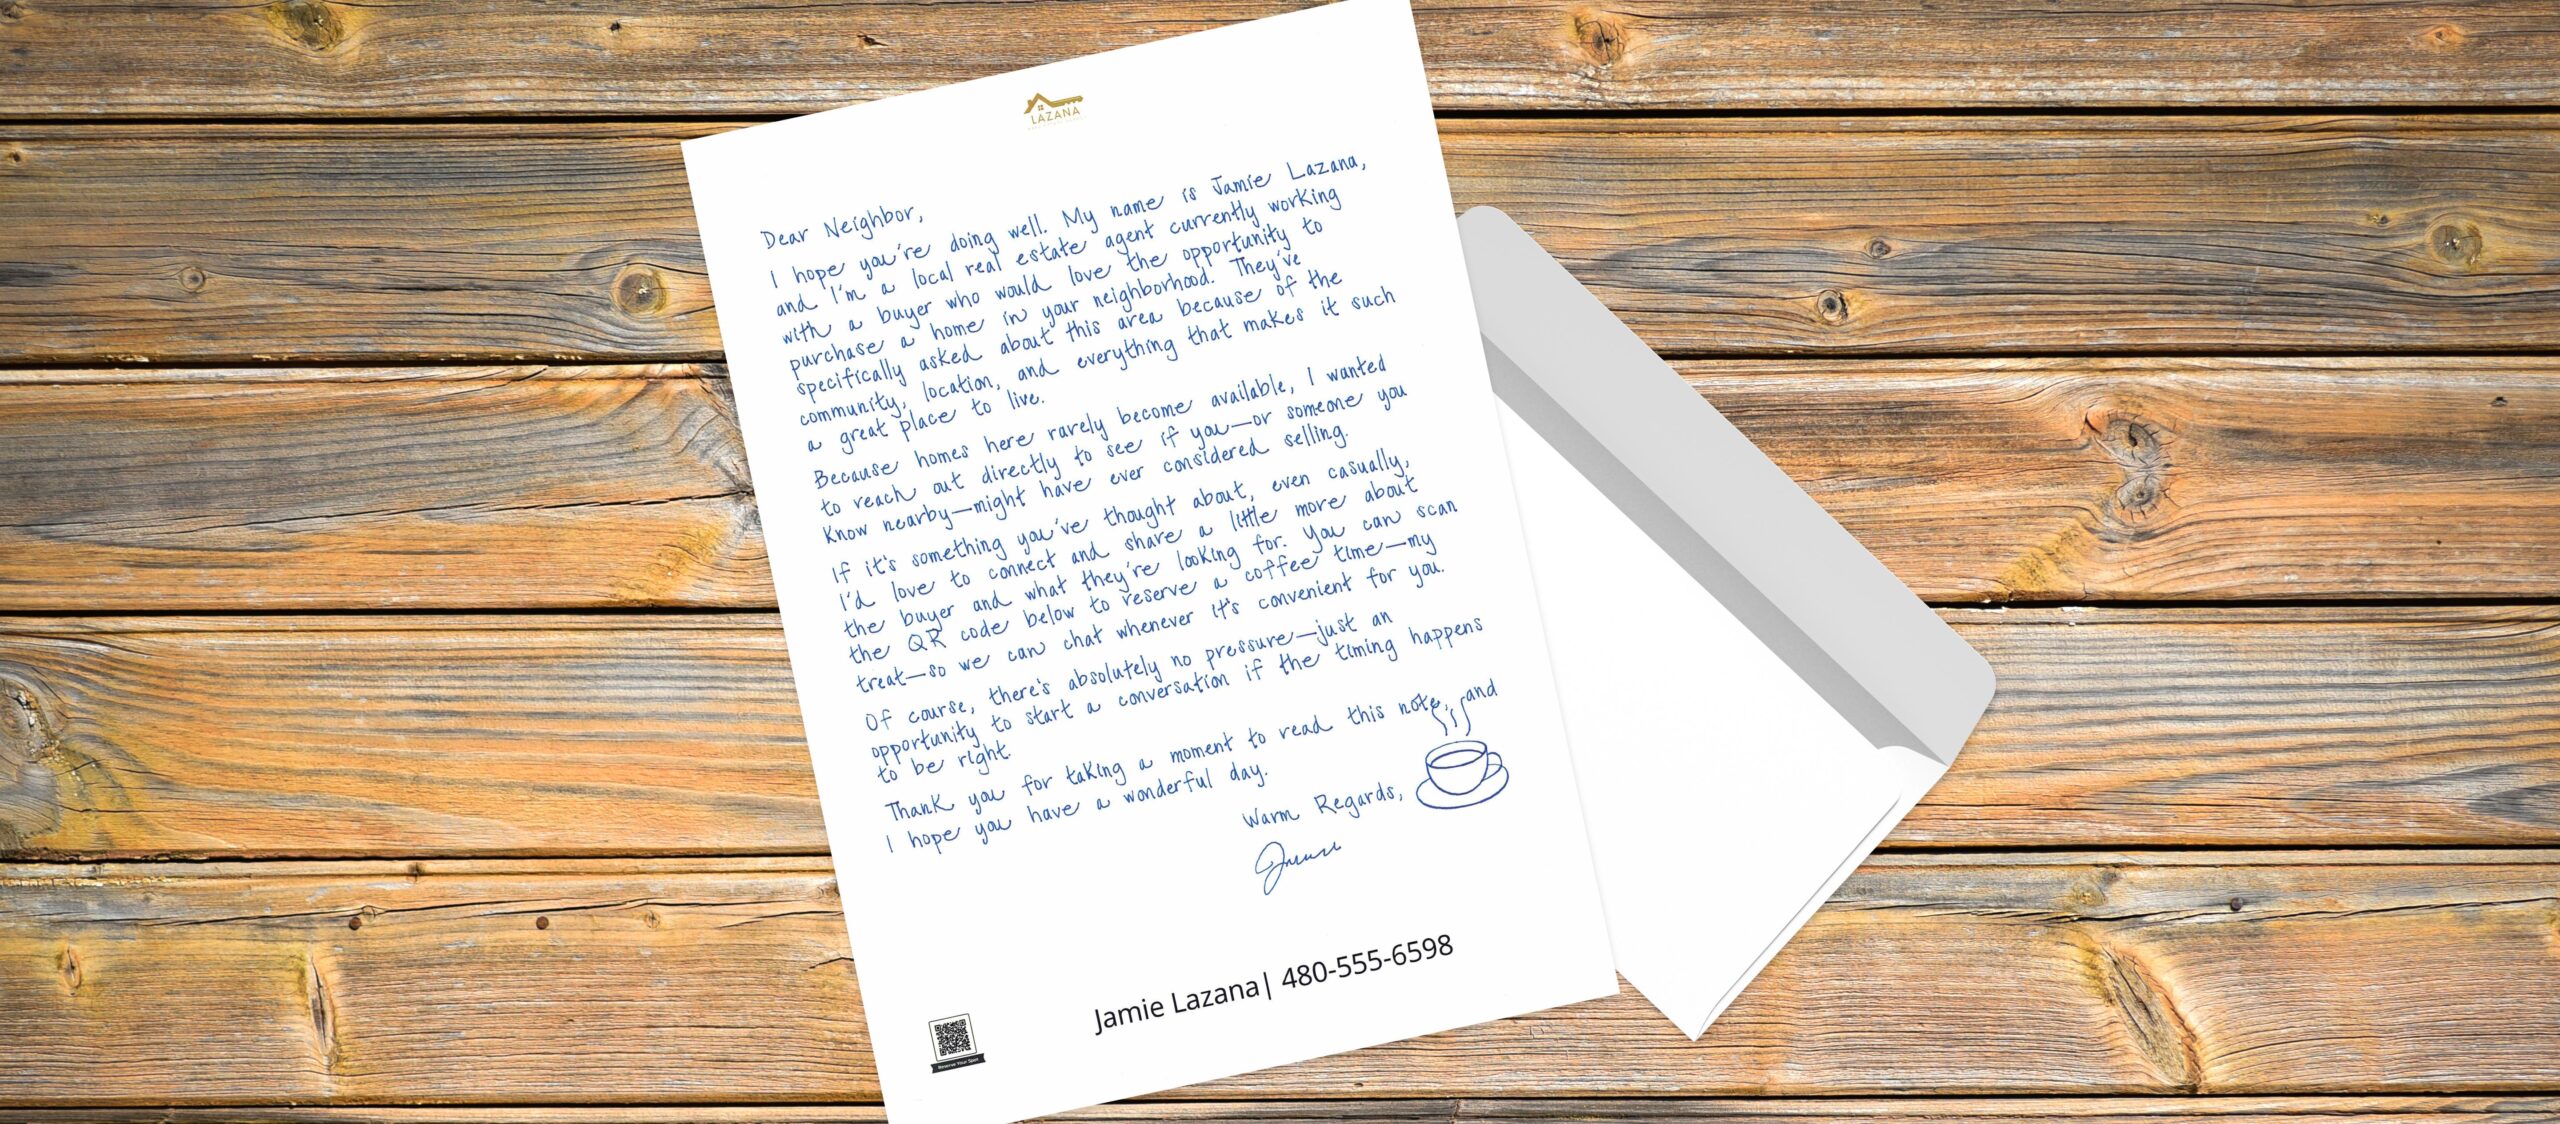 LAZANA
Dear Neighbor,
I hope you're doing well. My name is Jamie Lazana,
and I'm a local real estate agent currently working
with a buyer who would love the opportunity to
purchase a home in your neighborhood. They've
specifically asked about this area because of the
community, location, and everything that makes it such
a great place to live.
Because homes here rarely become available, I wanted
to reach out directly to see if you—or someone you
know nearby—might have ever considered selling.
If it's something you've thought about, even casually,
I'd love to connect and share a little more about
the buyer and what they're looking for. You can scan
the QR code below to reserve a coffee time—my
treat—so we can chat whenever it's convenient for you.
Of course, there's absolutely no pressure—just an
opportunity to start a conversation if the timing happens
to be right.
Thank you for taking a moment to read this note, and
I hope you have a wonderful day.
Warm Regards,
Jamie
Jamie Lazana| 480-555-6598
Reserve Your Spot